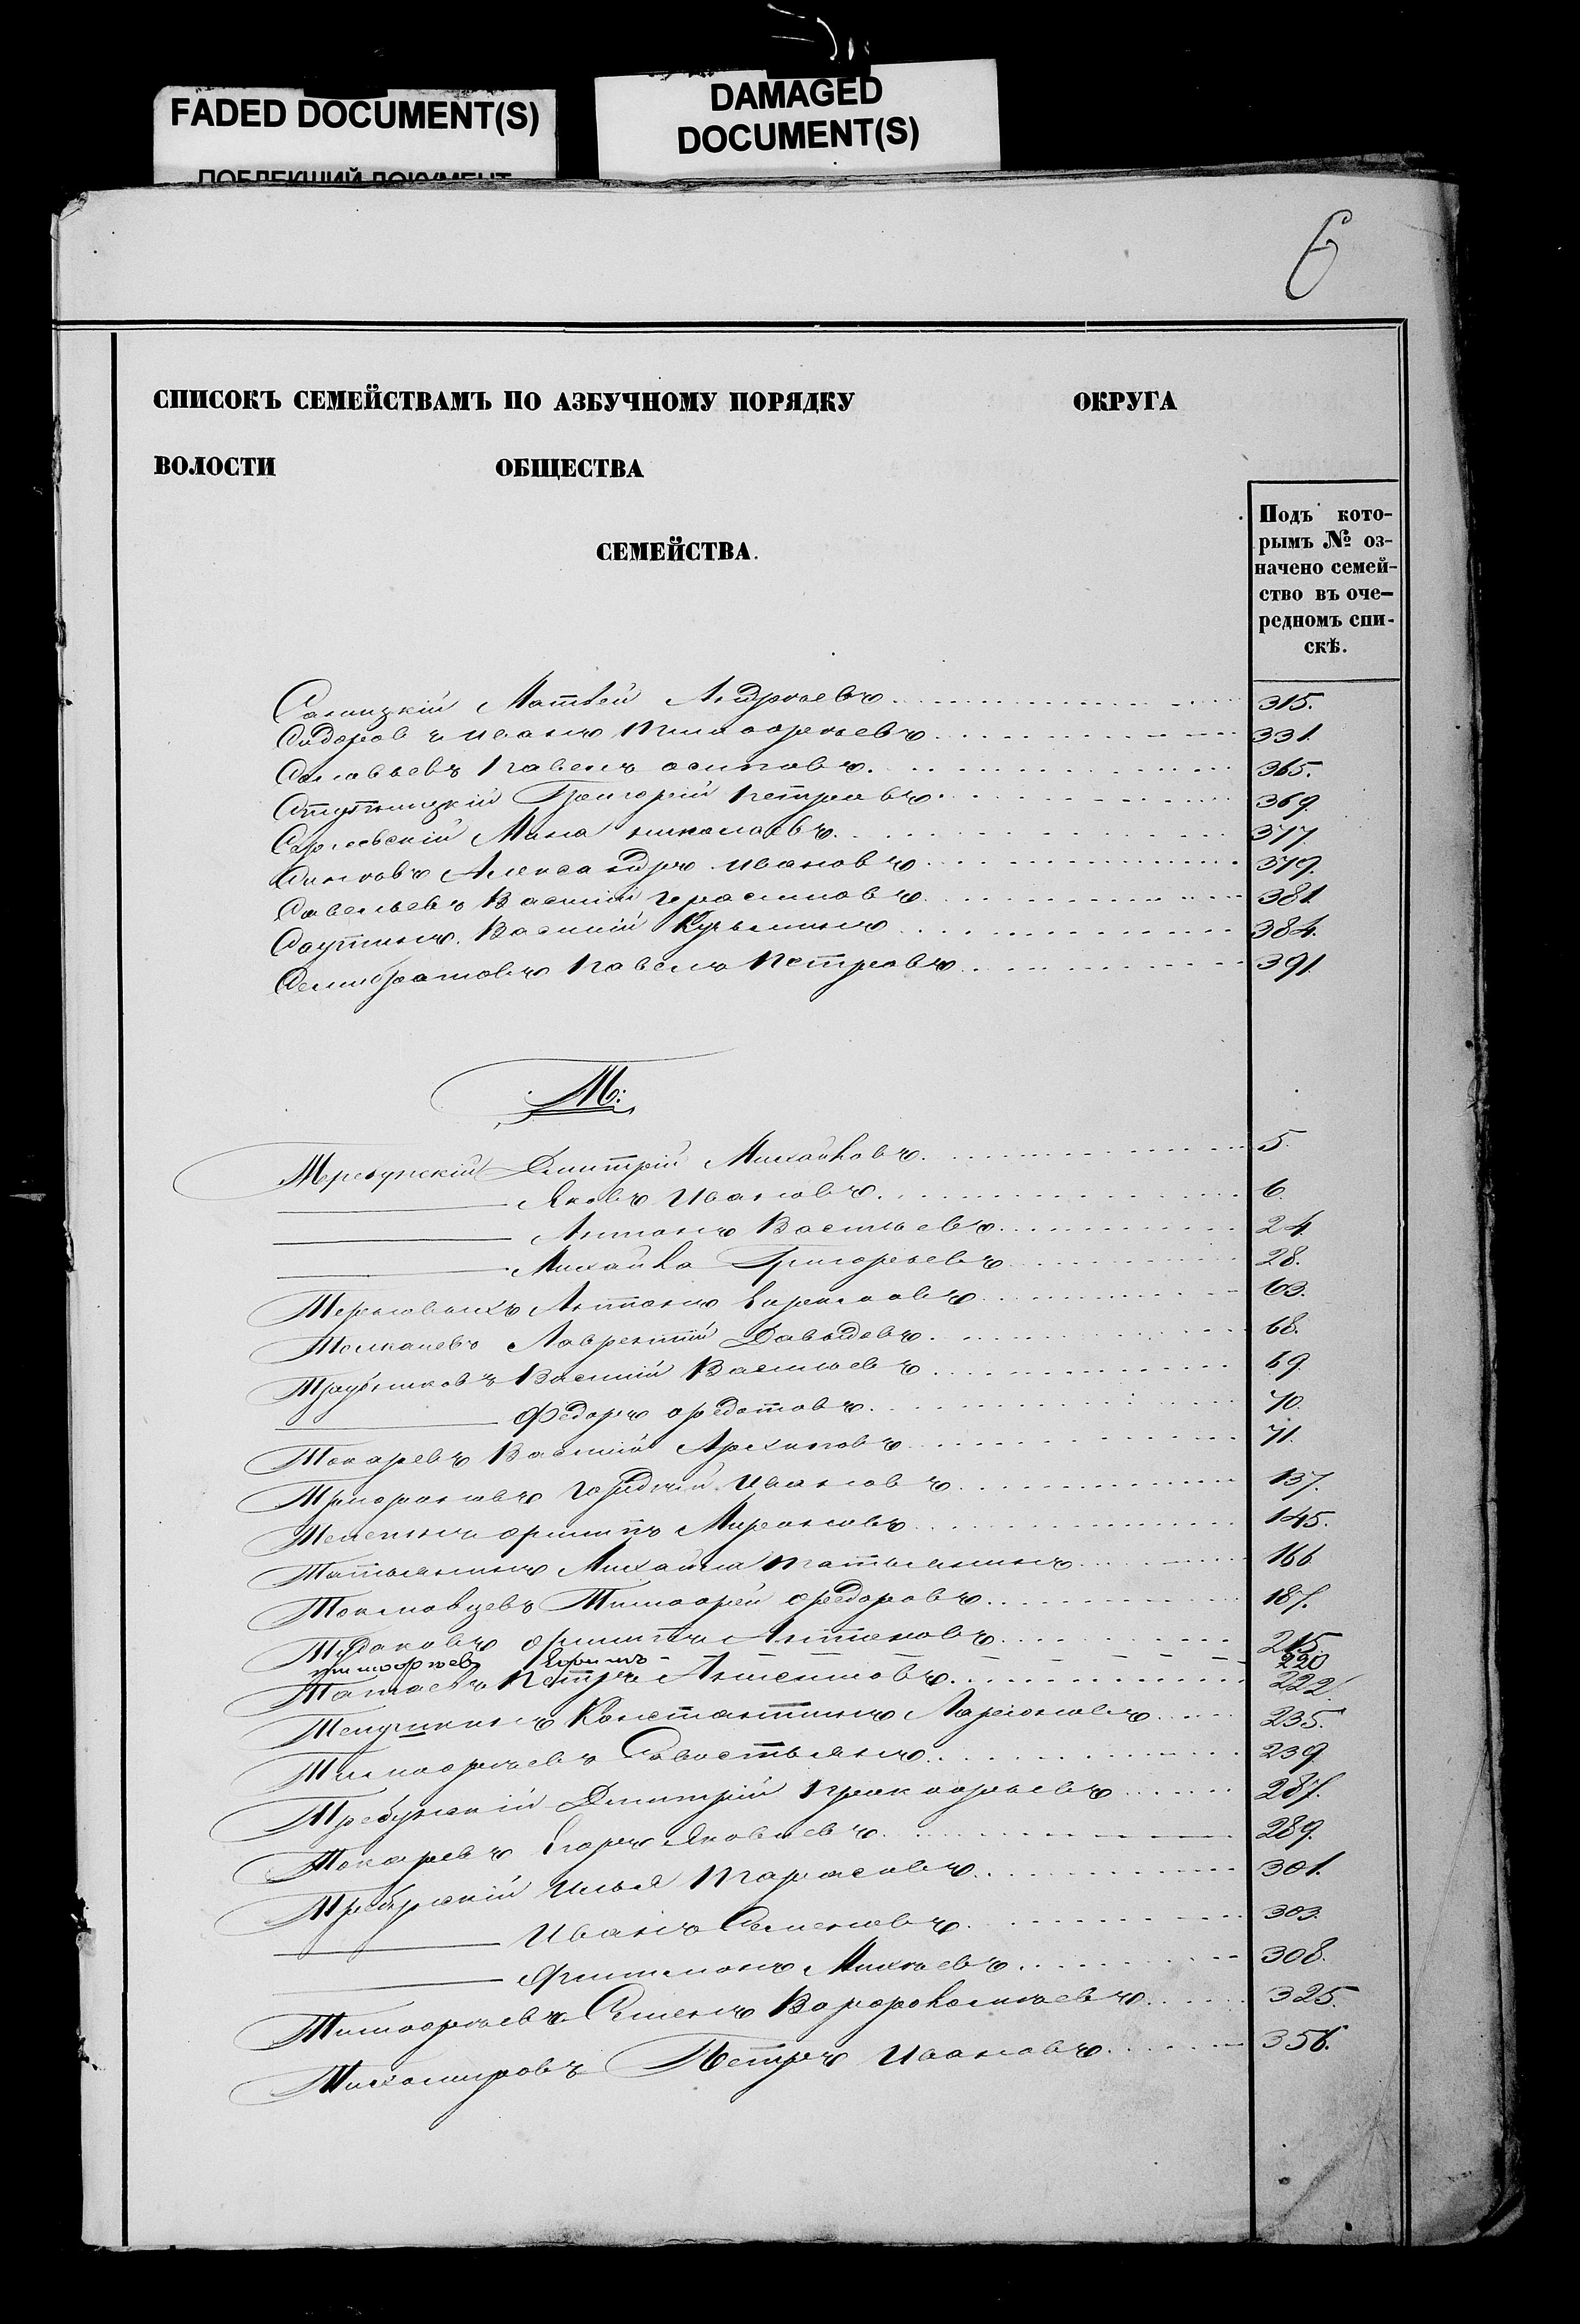 FADED DOCUMENT(S)
ПОБЛЕКШИЙ ДОКУМЕНТ
DAMAGED
DOCUMENT(S)
6
СПИСОКЪ СЕМЕЙСТВАМЪ ПО АЗБУЧНОМУ ПОРЯДКУ ОКРУГА
ВОЛОСТИ ОБЩЕСТВА
СЕМЕЙСТВА.
Подъ кото-
рымъ № оз-
начено семей-
ство въ оче-
редномъ спи-
скѣ.
Матвей Андреевъ 315.
Сидоровъ Иванъ Тимофеевъ 331.
Соловьевъ Павелъ Осиповъ 365.
Ступницкій Григорій Петровъ 369.
Мина Николаевъ 377.
Александръ Ивановъ 379.
Савельевъ Василій Герасимовъ 381
Саутинъ Василій Кузьминъ 384.
Семибратовъ Павелъ Петровъ 391.
Т:
Требунскій Дмитрій Михайловъ 5.
Яковъ Ивановъ 6.
Антонъ Васильевъ 24.
Михайла Григорьевъ 28.
Антонъ 63.
Толкачевъ Лаврентій Давыдовъ 68.
Трубниковъ Василій Васильевъ 69.
Федоръ Федотовъ 70.
Токаревъ Василій Архиповъ 71.
Гордѣй Ивановъ 137.
Филипъ Мироновъ 145.
Татьянинъ Михайла Татьянинъ 166
Толмовцевъ Тимофей Федоровъ 187.
Филипъ Антоновъ 215.
Тимофеевъ Ефимъ 220
Петръ Антиповъ 222.
Константинъ Ларіоновъ 235.
Тимофеевъ Савостьянъ 239.
Требунскій Дмитрій Прокофьевъ 287.
Токаревъ Егоръ Яковлевъ 289.
Требунскій Илья Тарасовъ 301.
Иванъ Семеновъ 303.
Филимонъ Михеевъ 308.
Тимофеевъ Семенъ Варфоломеевъ 325.
Тихомировъ Петръ Ивановъ 356.